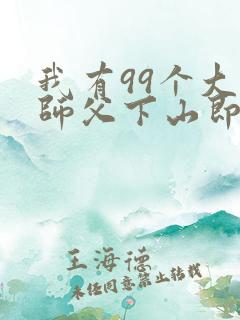 我有99个大
師父下山即
王海德
未经同意禁止转载